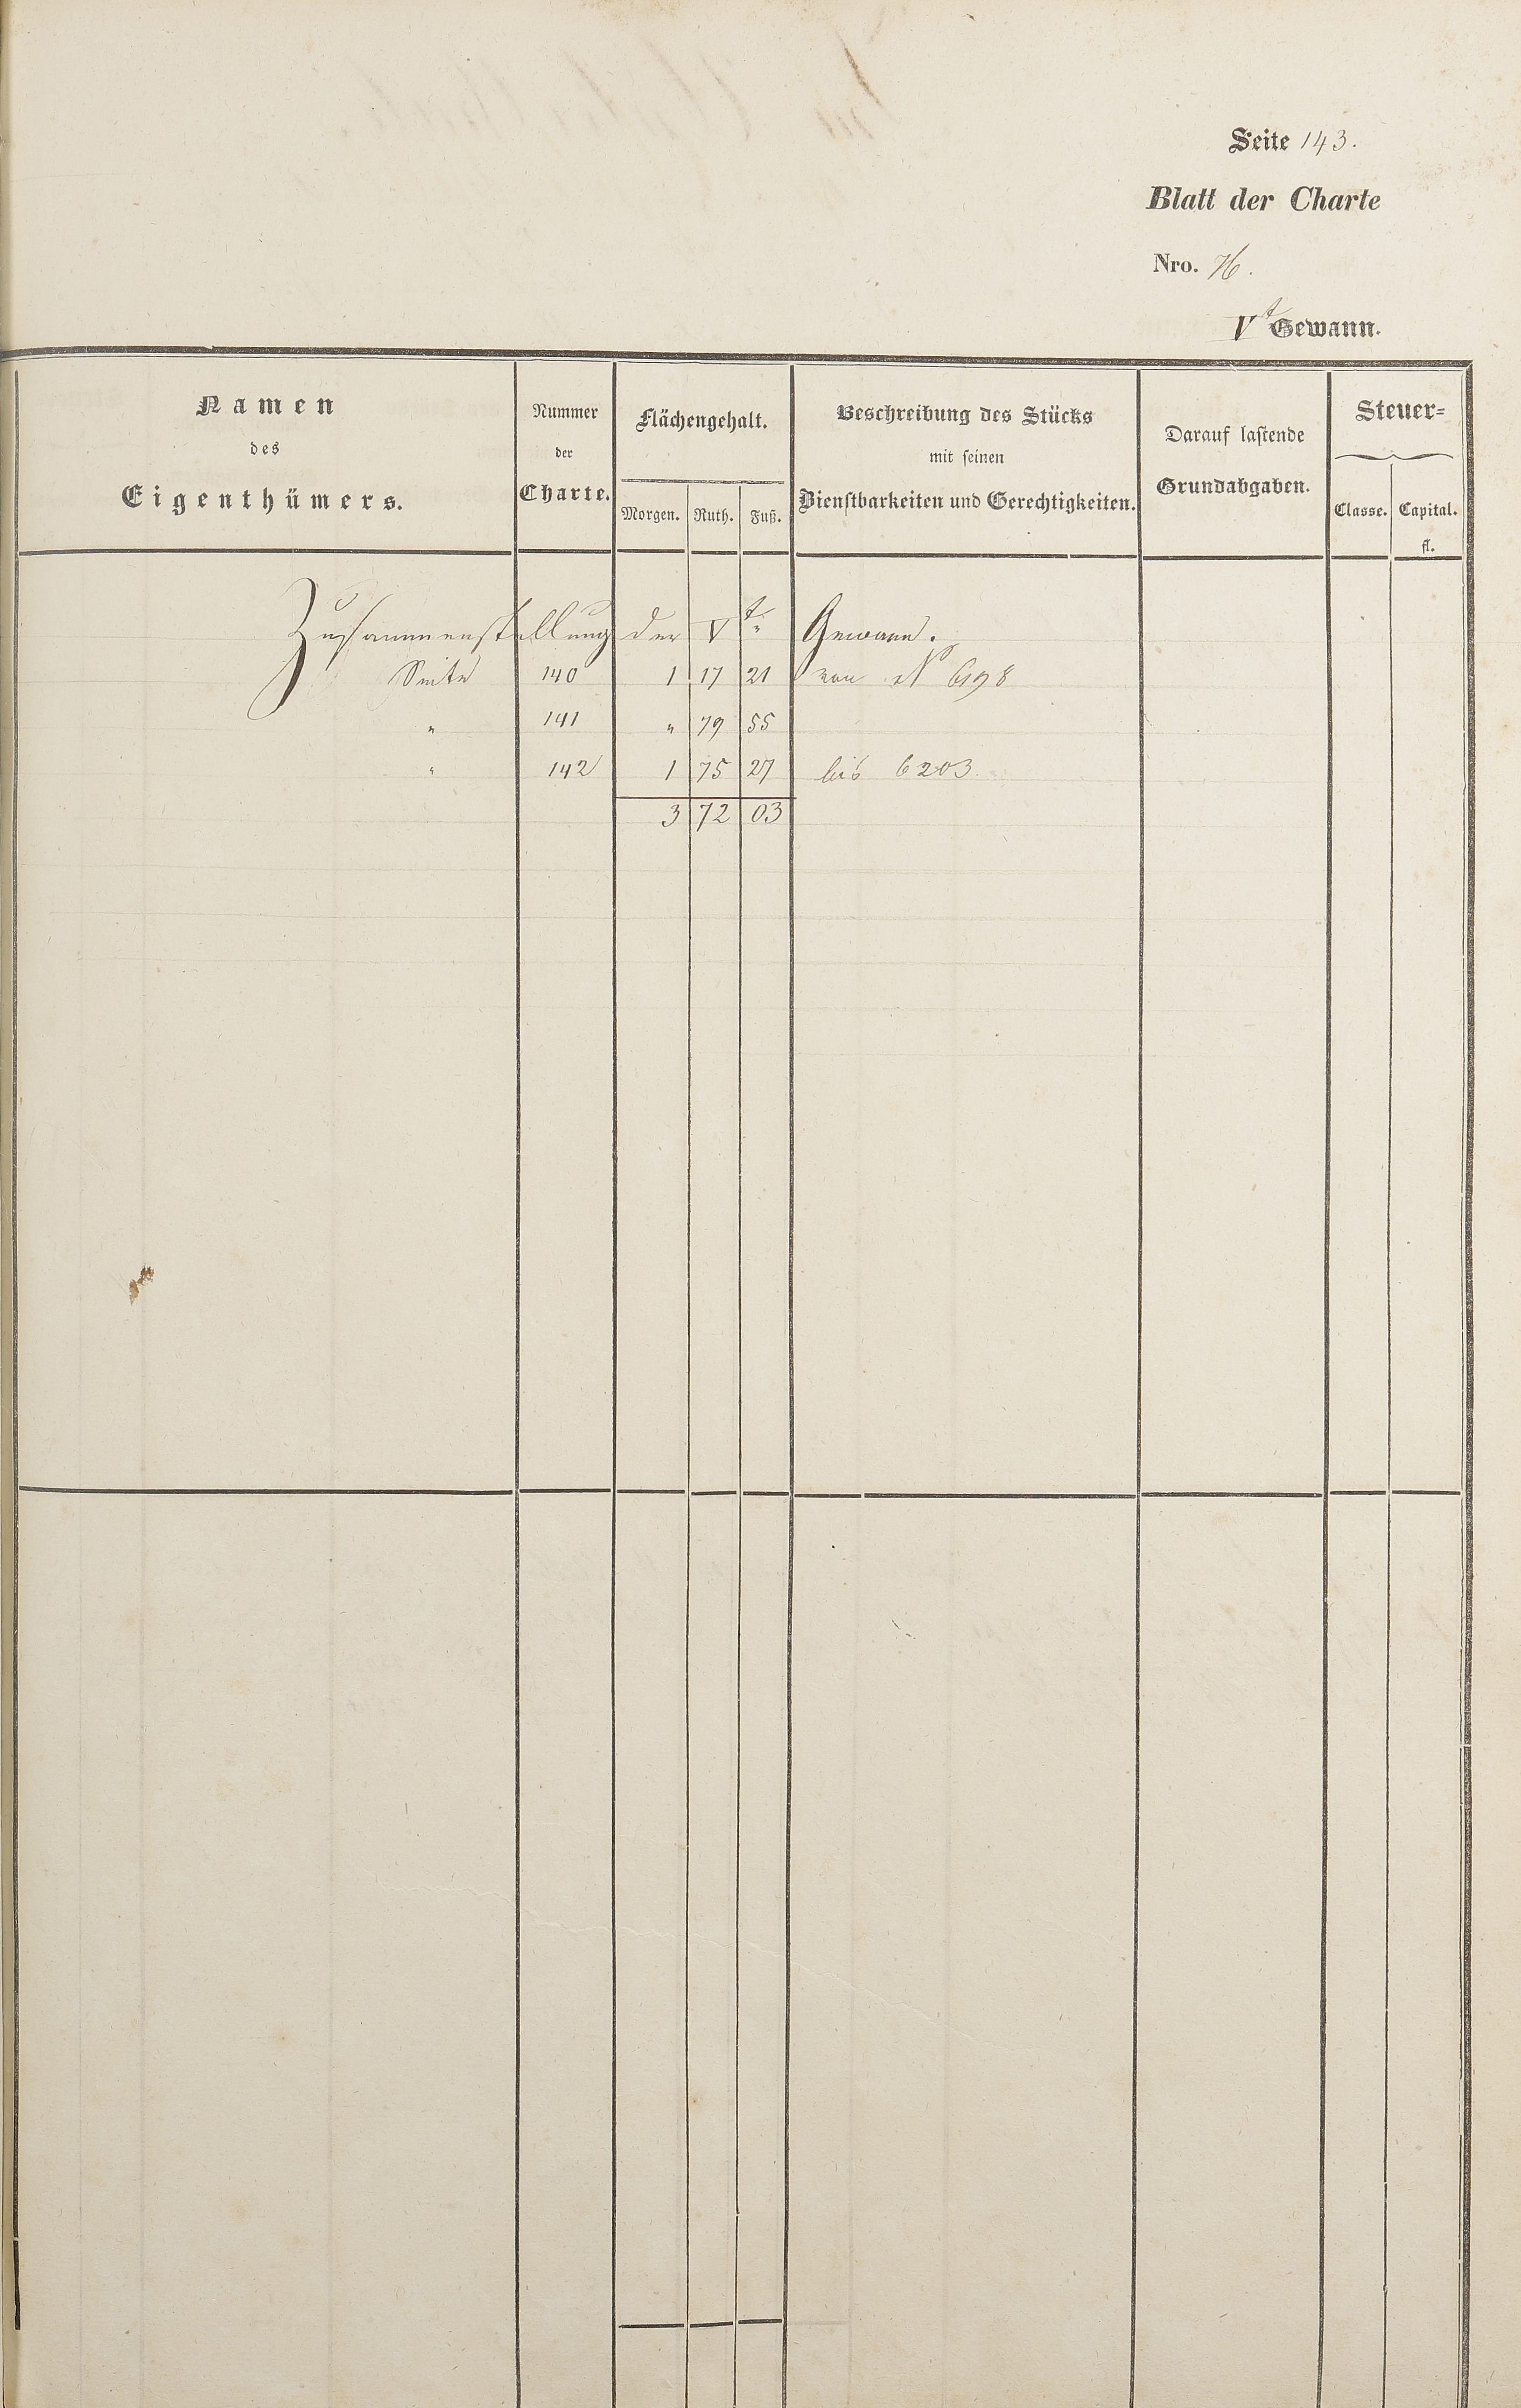 Seite 143.
Blatt der Charte
Nro. 76.
Vt Gewann.
Namen
des
Eigenthümers.
Nummer
der
Charte.
Flächengehalt.
Morgen. Ruth. Fuß.
Beschreibung des Stücks
mit seinen
Dienstbarkeiten und Gerechtigkeiten.
Darauf lastende
Grundabgaben.
Steuer=
Classe. Capital.
fl.
Zusammenstellung der Vt. Gewann.
Seite 140 1 17 21 von No 6198
" 141 " 79 55
" 142 1 75 27 bis 6203.
3 72 03